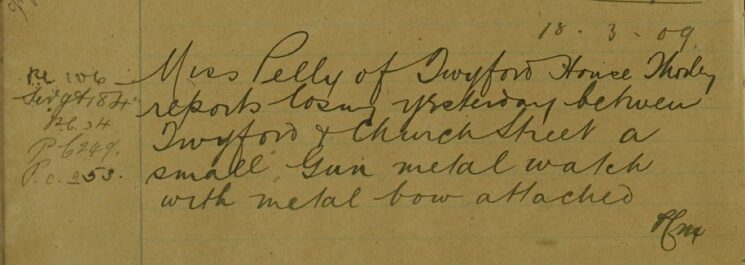 18 - 3 - 09
Miss Pelly of Twyford House Thorley
reports losing yesterday between
Twyford & Church Street a
small Gun metal watch
with metal bow attached
Pc 106
Sergt 18
Pc. 34
P.C 249.
P.c. 253.